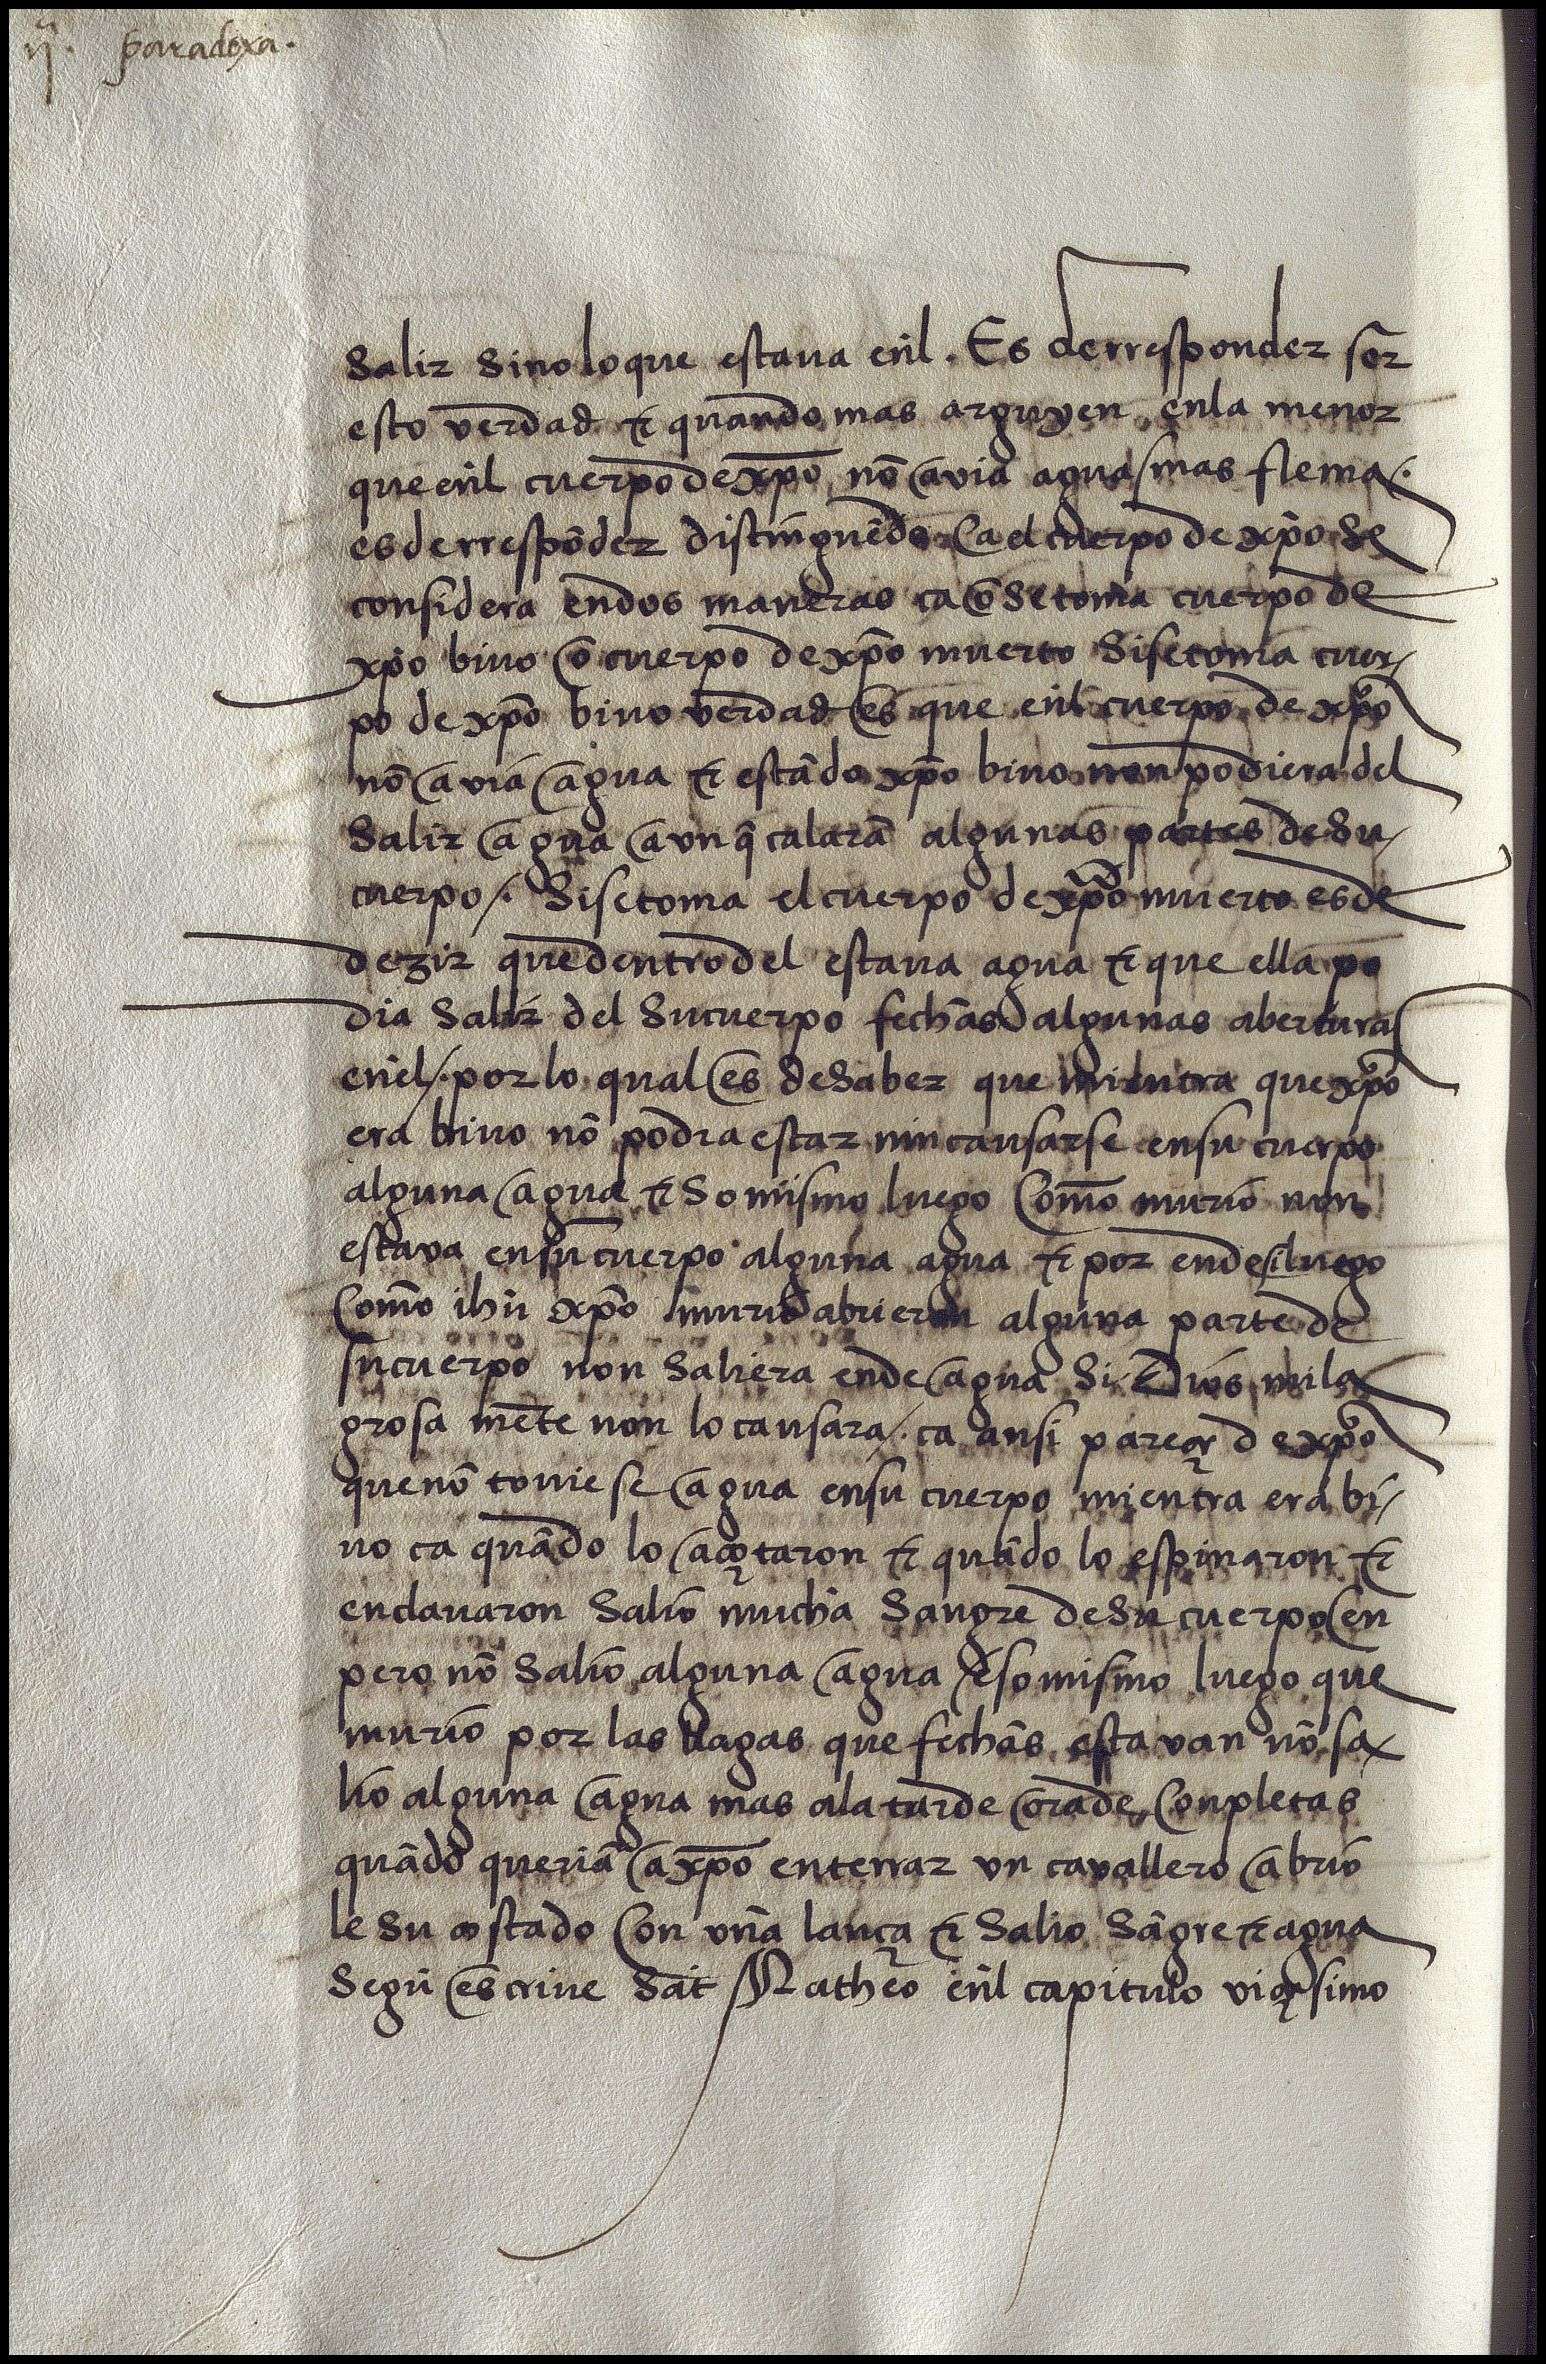 ij. paradoxa.
salir sino lo que estaua en̄l. Es de rresponder ser
esto verdad ⁊ quando mas arguyen enla menor
que en̄l cuerpo de xp̄o nō avia agua mas flema /.
es de rrespōder distinguēdo Ca el cuerpo de xp̄o se
considera en dos maneras ca o se toma cuerpo de
xp̄o biuo o cuerpo de xp̄o muerto Si se toma cuer/
po de xp̄o biuo verdad es que en̄l cuerpo de xp̄o
nō avia agua ⁊ estādo xp̄o biuo non podiera del
salir agua avn q̄ calarā algunas partes de su/
cuerpo /. Si se toma el cuerpo de xp̄o muerto es de
dezir que dentro del estaua agua ⁊ que ella po
dia salir del su cuerpo fechas algunas aberturas
en̄l /. por lo qual es de saber que mientra que xp̄o
era biuo nō podia estar nin causarse en su cuerpo
alguna agua ⁊ so mismo luego Como murio non
estava en su cuerpo alguna agua ⁊ por ende si luego
Como ih̄u xp̄o murio abrieran alguna parte de
su cuerpo non saliera ende agua Si Dios mila
grosa mēte non lo causara /. ca ansi pareçe de xp̄o
que nō touiese agua en su cuerpo mientra era bi/
uo ca quādo lo açotaron ⁊ quādo lo espinaron ⁊
enclauaron salio mucha sangre de su cuerpo en
pero nō salio alguna agua / eso mismo luego que
murio por las llagas que fechas estavan nō sa
lio alguna agua mas ala tarde ora de Conpletas
quādo queriā a xp̄o enterrar vn cavallero abrio
le su costado Con vna lança ⁊ salio sāgre ⁊ agua
segū escriue Sāt Matheo en̄l capitulo viçesimo